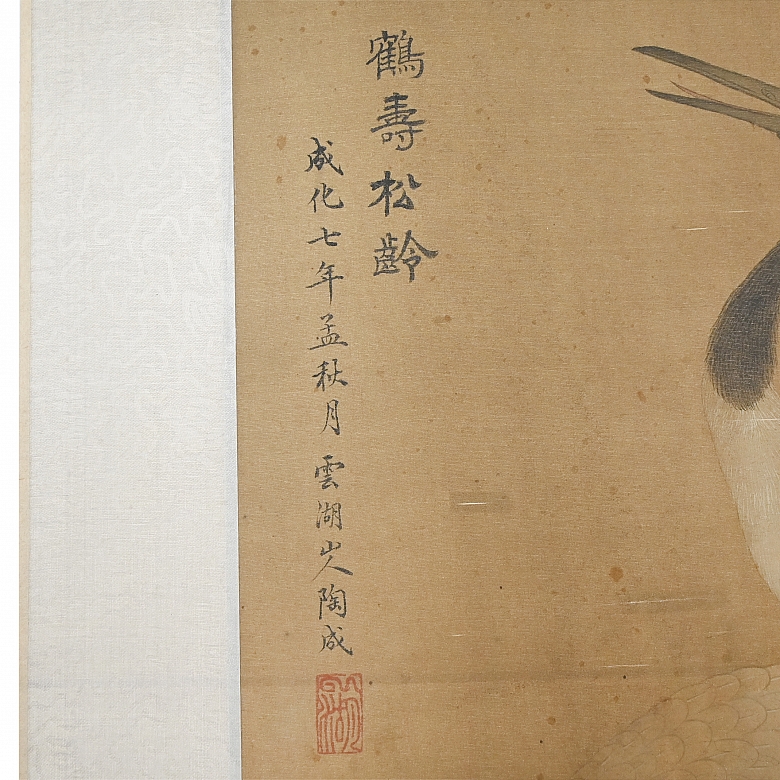 鶴壽松齡
成化七年孟秋月雲湖山人陶成